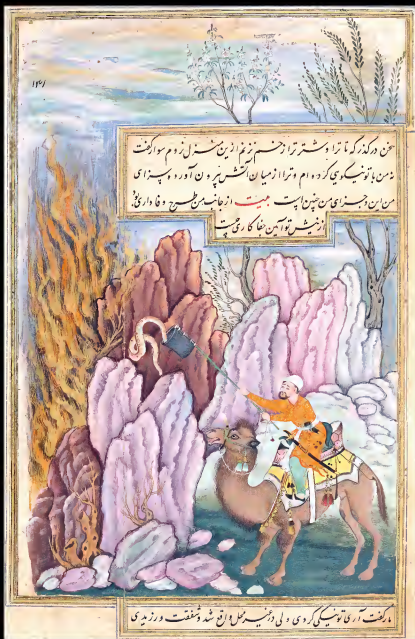 سخن درگذر که تا ترا و شتر ترا زخم نزنم ازین منزل نروم سوار گفت
نه من با تو نیکوی کرده ام و ترا از میان آتش بیرون آورده و سزای
من این و جزای من چنین است بیت از جانب من طرح وفاداری بود
از نیش تو آیین جفاکاری چیست
مار گفت آری تو نیکی کردی ولی در غیر محل واقع شد و شفقت ورزیدی